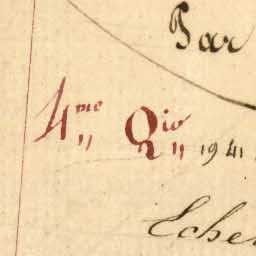 Par
4me Qio 1941
Eche